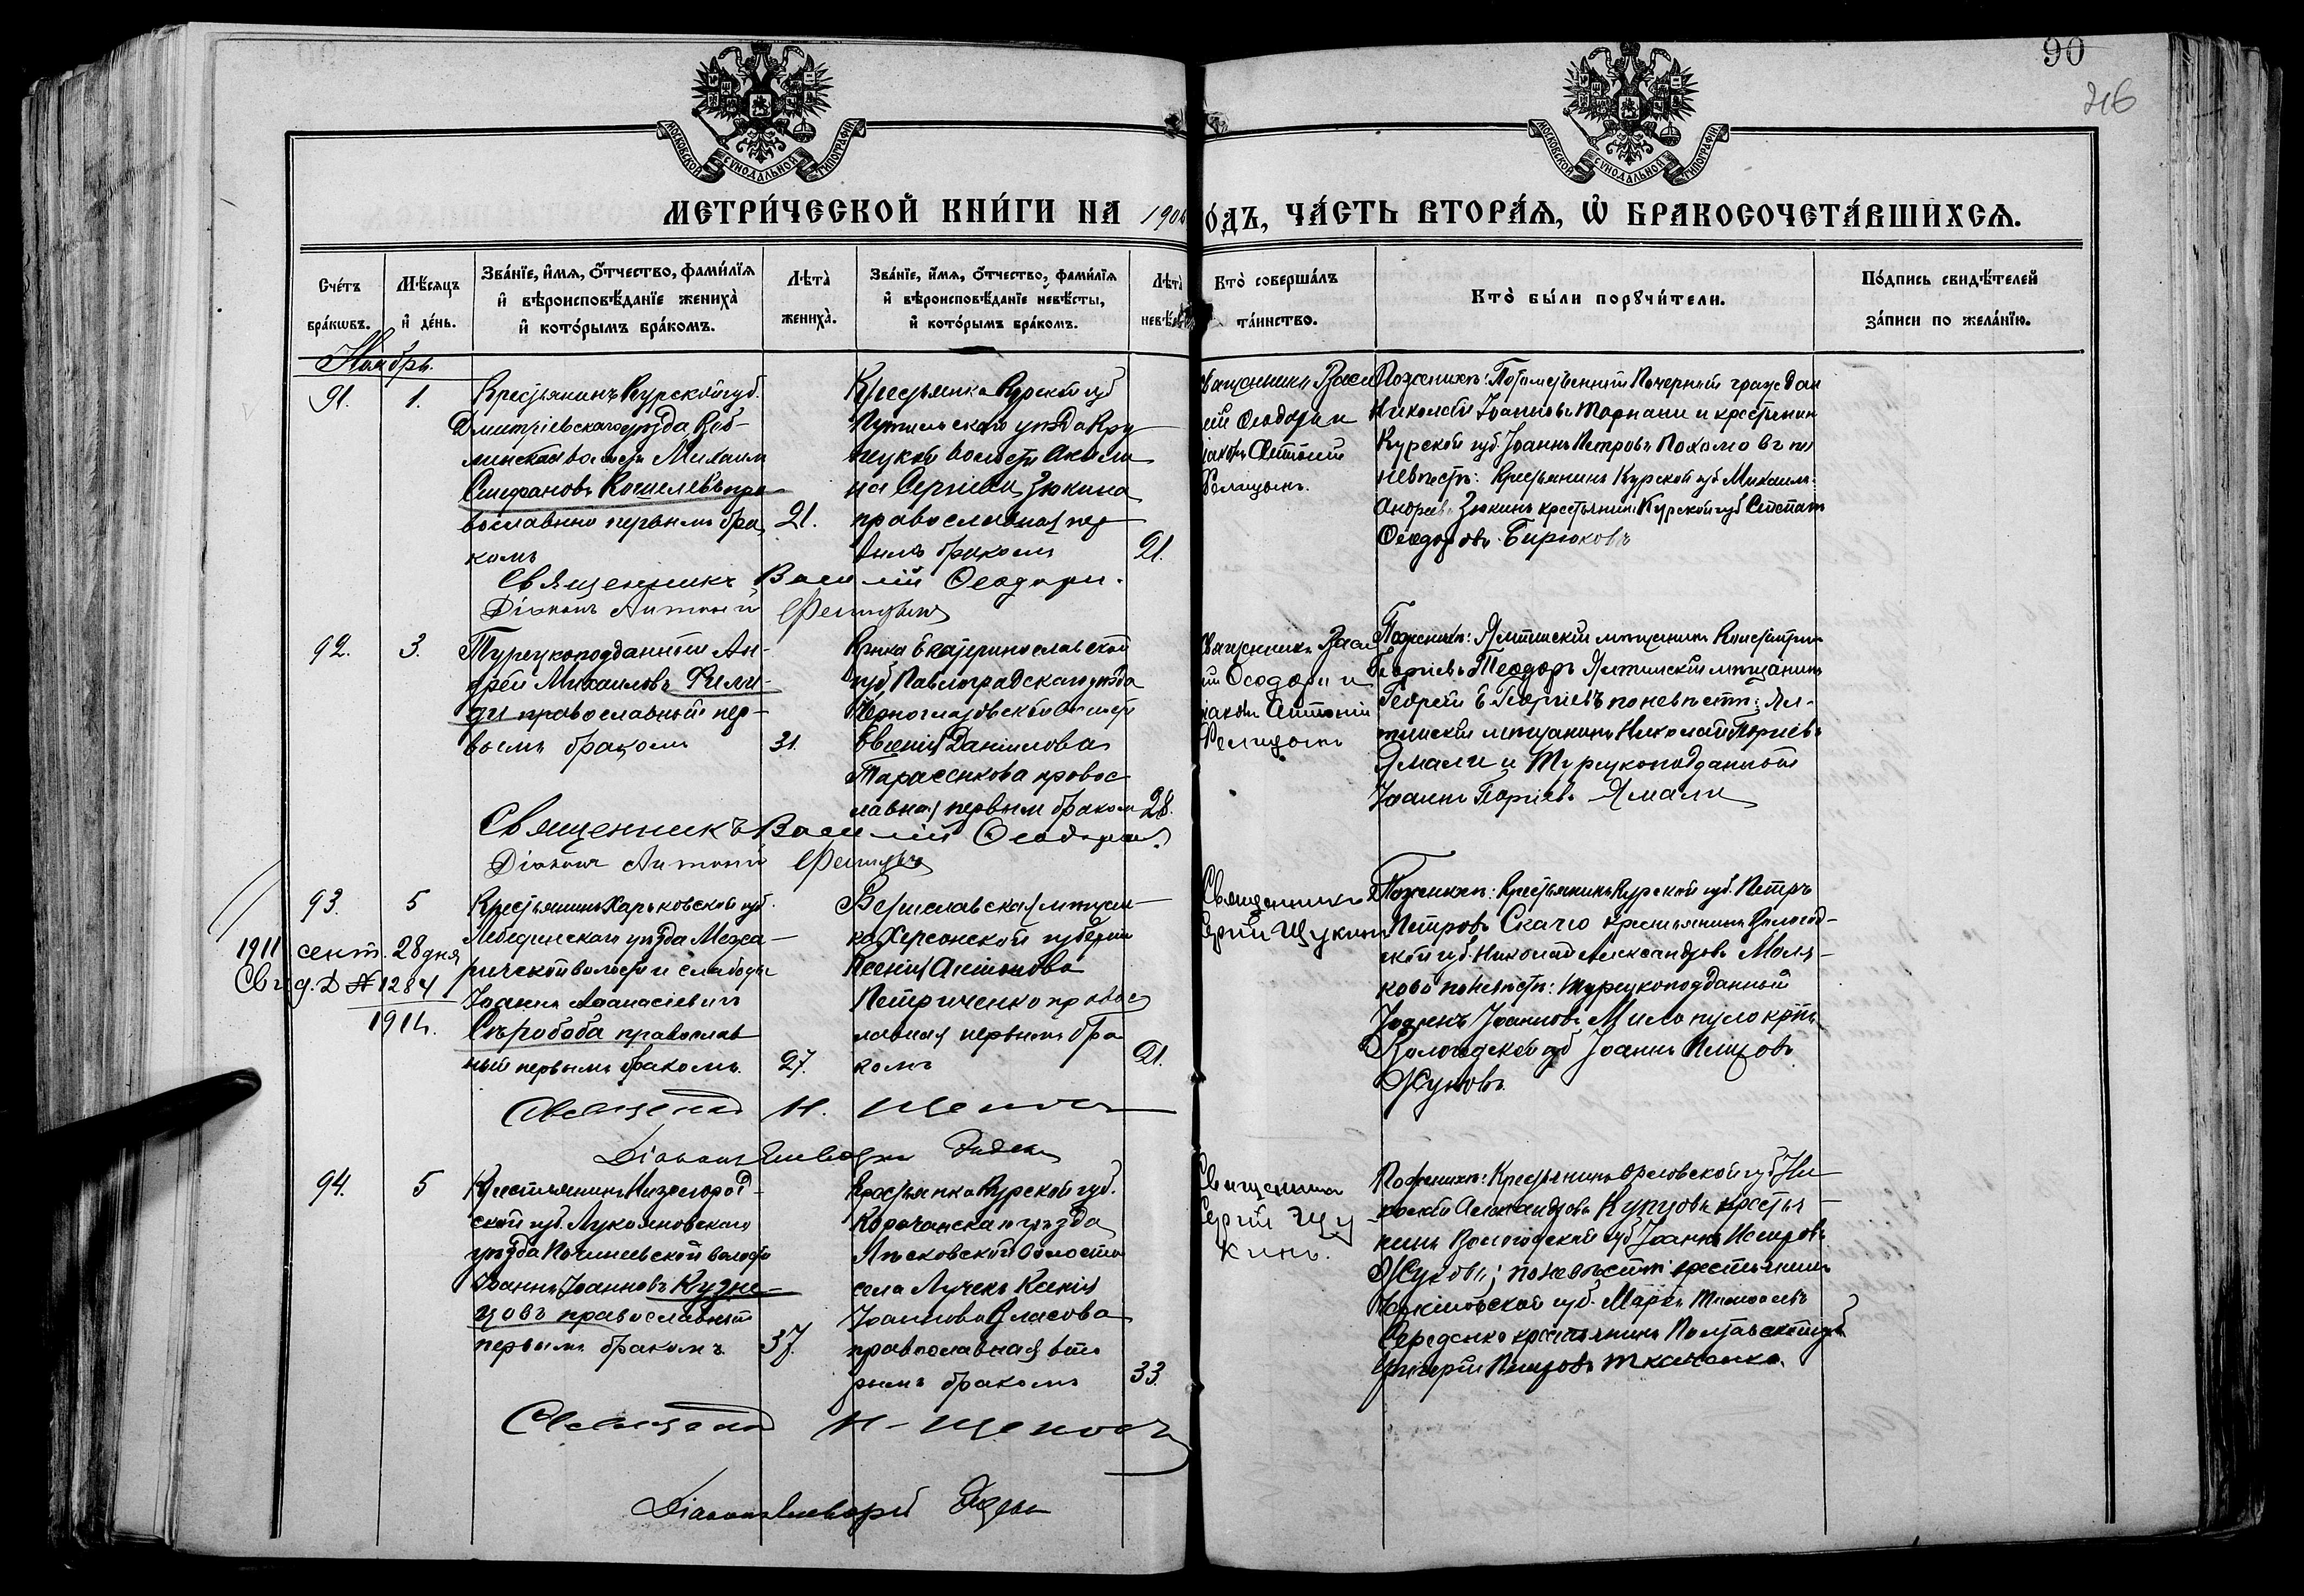 90
216
МОСКОВСКОЙ СѴНОДАЛЬНОЙ ТИПОГРАФІИ
МОСКОВСКОЙ СѴНОДАЛЬНОЙ ТИПОГРАФІИ
МЕТРИ́ЧЕСКОЙ КНИ́ГИ НА 190
О́ДЪ, ЧА́СТЬ ВТОРА́Я, Ѡ҆ БРАКОСОЧЕТА́ВШИХСѦ.
Сче́тъ бра́кѡвъ.
Мѣ́сяцъ и҆ де́нь.
Зва́нїе, и҆́мя, ѻ҆́тчество, фами́лїя и҆ вѣроисповѣ́данїе жениха̀ и҆ кото́рымъ бра́комъ.
Лѣта̀ жениха̀.
Зва́нїе, и҆́мя, ѻ҆́тчество, фами́лїя и҆ вѣроисповѣ́данїе невѣ́сты, и҆ кото́рымъ бра́комъ.
Лѣта̀
Кто̀ соверша́лъ та́инство.
Кто̀ бы́ли порꙋчи́тели.
По́дпись свидѣ́телей за́писи по жела́нїю.
Ноябрь.
91.
1.
Крестьянинъ Курской губ.
Дмитріевскаго уѣзда
волости Михаилъ
Стефановъ Кошелевъ пра-
вославный первымъ бра
комъ
21.
Крестьянка Курской губ
Путивльскаго уѣзда Кру
пецкой волости Акили
на Сергіева Зюкина
православная пер
вымъ бракомъ
21.
Священникъ Васи
лій Ѳеодори и
діаконъ Антоній
По женихѣ: Потомственный Почетный граждан
Николай Іоанновъ и крестьянин
Курской губ. Іоаннъ Петровъ по
невѣстѣ: Крестьянинъ Курской губ Михаилъ
Андреевъ Зюкинъ крестьянинъ Курской губ Степанъ
Ѳеодоровъ Бирюковъ
Священникъ Василій Ѳеодори.
Діаконъ Антоній
92.
3.
Турецкоподданный Ан-
дрей Михаиловъ Фили-
ди православный пер-
вымъ бракомъ
31.
Кр-нка Екатеринославской
губ Павлоградскаго уѣзда
волости
Евгенія Даніилова
Тарасенкова правос
лавная первымъ бракомъ
28.
Священникъ Васи
лій Ѳеодори и
діаконъ Антоній
По женихѣ: Ялтинскій мѣщанинъ Константинъ
Георгіевъ Теодоръ Ялтинскій мѣщанинъ
Георгій Е. Георгіевъ по невѣстѣ: Ял-
тинскій мѣщанинъ Николай Георгіевъ
Ямали и Турецкоподданный
Іоаннъ Георгіевъ Ямали
Священникъ Василій Ѳеодори.
Діаконъ Антоній
93.
5
1911 сент. 28 дня
Свид. № 1284
Крестьянинъ Харьковской губ.
Лебединскаго уѣзда Межи-
ричской волости и слободы
Іоаннъ Аѳанасіевичъ
Сыробаба православ
ный первымъ бракомъ.
27.
Бериславская мѣщан-
ка Херсонской губерніи
Ксенія Антонова
Петриченко правос
лавная первымъ бра
комъ
21.
Священникъ
Сергій Щукинъ
По женихѣ: Крестьянинъ Курской губ. Петръ
Петровъ крестьянинъ Вологод-
ской губ. Николай Александровъ
по невѣстѣ: турецкоподданный
Іоаннъ Іоанновъ
Вологодской губ Іоаннъ Петровъ
Жуковъ.
Священникъ Н. Щеповъ
Діаконъ
94.
5
Крестьянинъ Нижегород-
ской губ. Лукояновскаго
уѣзда Починковской волости
Іоаннъ Іоанновъ Кузне-
цовъ православный
первымъ бракомъ
37.
Крестьянка Курской губ.
Корочанскаго уѣзда
волости
села Лучекъ Ксенія
Іоаннова Власова
православная вто
рымъ бракомъ
33.
Священникъ
Сергій Щу
кинъ.
По женихѣ: Крестьянинъ Орловской губ. Ни
колай Александровъ Купцовъ крестья
нинъ Вологодской губ Іоаннъ Петровъ
Жуковъ; по невѣстѣ крестьянинъ
губ. Маркъ
Середенко крестьянинъ Полтавской губ
Григорій Петровъ Ткаченко.
Священникъ Н. Щеповъ
Діаконъ